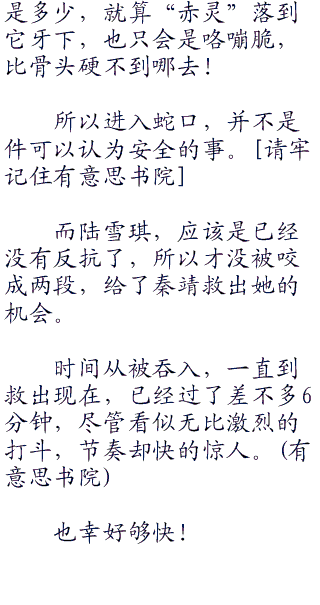 是多少，就算“赤灵”落到
它牙下，也只会是咯嘣脆，
比骨头硬不到哪去！
所以进入蛇口，并不是
件可以认为安全的事。[请牢
记住有意思书院]
而陆雪琪，应该是已经
没有反抗了，所以才没被咬
成两段，给了秦靖救出她的
机会。
时间从被吞入，一直到
救出现在，已经过了差不多6
分钟，尽管看似无比激烈的
打斗，节奏却快的惊人。(有
意思书院)
也幸好够快！